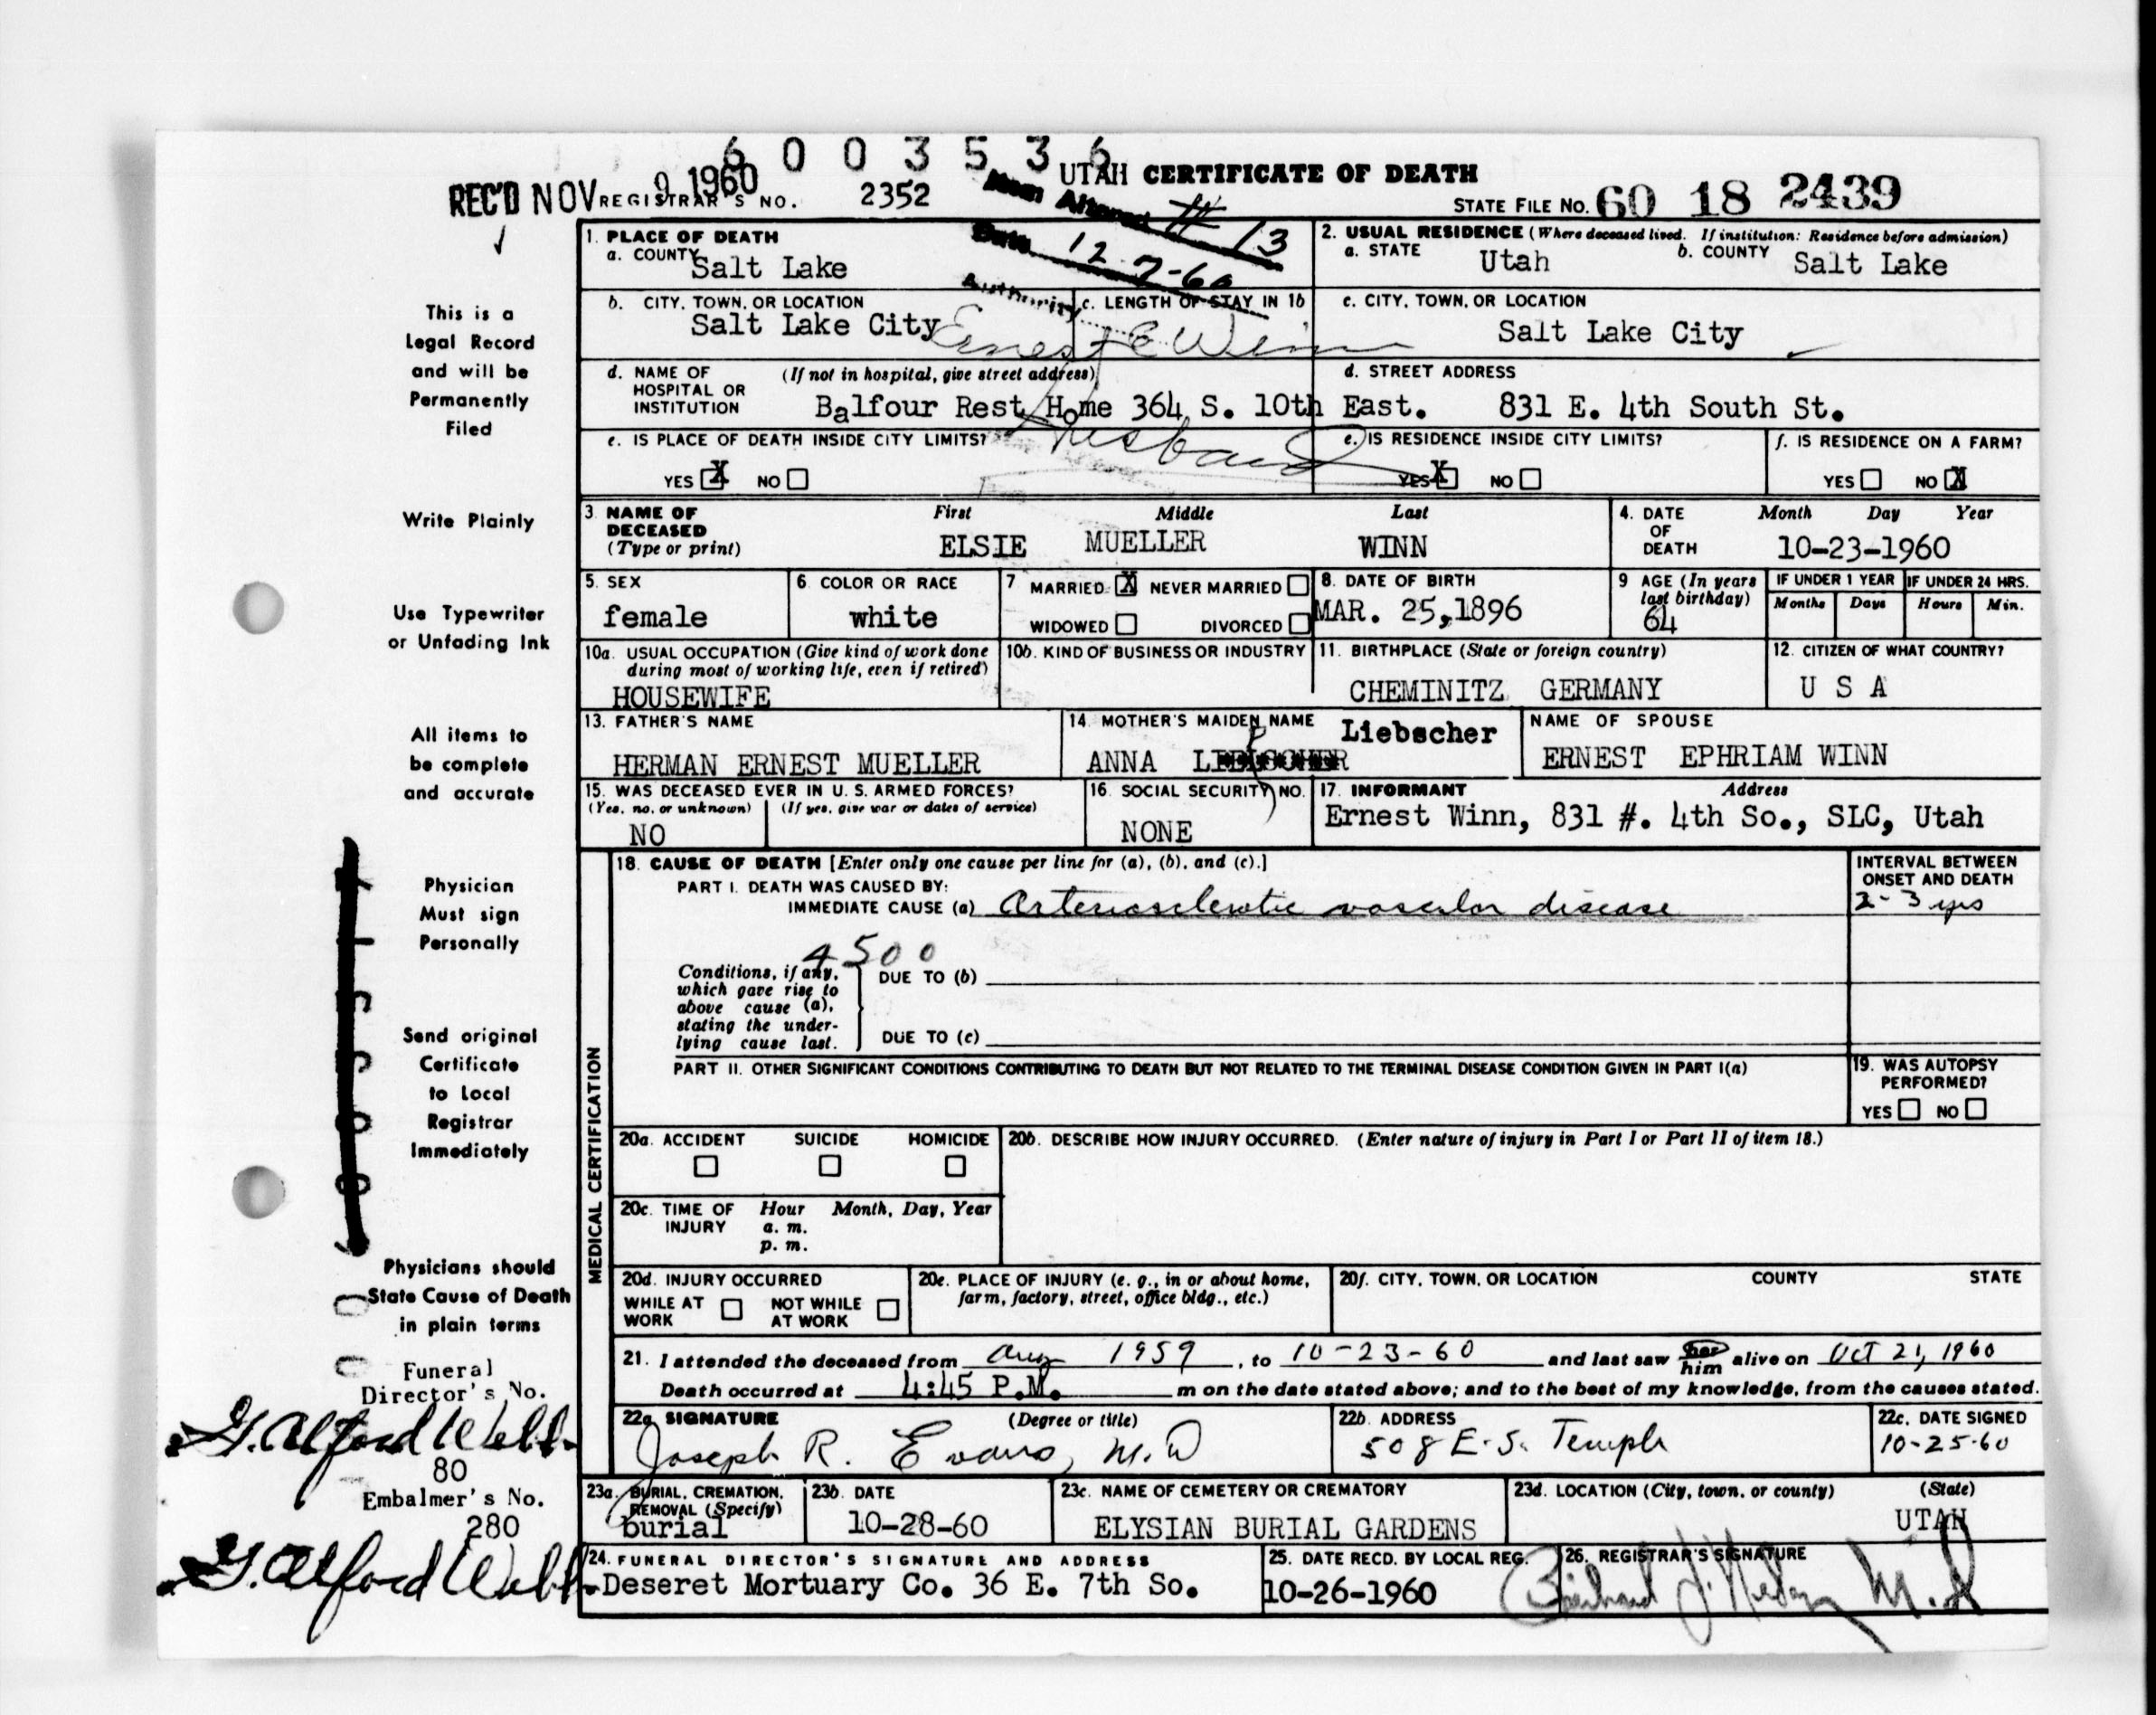 6 0 0 3 5 3 6
REC'D NOV 9 1960
REGISTRAR'S NO. 2352
UTAH CERTIFICATE OF DEATH
STATE FILE NO. 60 18 2439
Item Altered # 13
Date 12-7-60
Authority Ernest E Winn
Husband
1. PLACE OF DEATH
a. COUNTY Salt Lake
2. USUAL RESIDENCE (Where deceased lived. If institution: Residence before admission)
a. STATE Utah b. COUNTY Salt Lake
b. CITY, TOWN, OR LOCATION Salt Lake City
c. LENGTH OF STAY IN 1b
c. CITY, TOWN, OR LOCATION Salt Lake City
d. NAME OF HOSPITAL OR INSTITUTION (If not in hospital, give street address)
Balfour Rest Home 364 S. 10th East.
d. STREET ADDRESS
831 E. 4th South St.
e. IS PLACE OF DEATH INSIDE CITY LIMITS?
YES X NO
e. IS RESIDENCE INSIDE CITY LIMITS?
YES X NO
f. IS RESIDENCE ON A FARM?
YES NO X
3. NAME OF DECEASED (Type or print)
First Middle Last
ELSIE MUELLER WINN
4. DATE OF DEATH Month Day Year
10-23-1960
5. SEX
female
6. COLOR OR RACE
white
7 MARRIED X NEVER MARRIED
WIDOWED DIVORCED
8. DATE OF BIRTH
MAR. 25,1896
9 AGE (In years last birthday)
64
IF UNDER 1 YEAR IF UNDER 24 HRS.
Months Days Hours Min.
10a. USUAL OCCUPATION (Give kind of work done during most of working life, even if retired)
HOUSEWIFE
10b. KIND OF BUSINESS OR INDUSTRY
11. BIRTHPLACE (State or foreign country)
CHEMINITZ GERMANY
12. CITIZEN OF WHAT COUNTRY?
U S A
13. FATHER'S NAME
HERMAN ERNEST MUELLER
14. MOTHER'S MAIDEN NAME
Liebscher
ANNA
NAME OF SPOUSE
ERNEST EPHRIAM WINN
15. WAS DECEASED EVER IN U. S. ARMED FORCES?
(Yes, no, or unknown) (If yes, give war or dates of service)
NO
16. SOCIAL SECURITY NO.
NONE
17. INFORMANT Address
Ernest Winn, 831 #. 4th So., SLC, Utah
MEDICAL CERTIFICATION
18. CAUSE OF DEATH [Enter only one cause per line for (a), (b), and (c).]
INTERVAL BETWEEN ONSET AND DEATH
PART I. DEATH WAS CAUSED BY:
IMMEDIATE CAUSE (a) Arteriosclerotic vascular disease
2-3 yrs
4500
Conditions, if any, which gave rise to above cause (a), stating the underlying cause last.
DUE TO (b)
DUE TO (c)
PART II. OTHER SIGNIFICANT CONDITIONS CONTRIBUTING TO DEATH BUT NOT RELATED TO THE TERMINAL DISEASE CONDITION GIVEN IN PART I(a)
19. WAS AUTOPSY PERFORMED?
YES NO
20a. ACCIDENT SUICIDE HOMICIDE
20b. DESCRIBE HOW INJURY OCCURRED. (Enter nature of injury in Part I or Part II of item 18.)
20c. TIME OF INJURY Hour Month, Day, Year
a. m.
p. m.
20d. INJURY OCCURRED
WHILE AT WORK NOT WHILE AT WORK
20e. PLACE OF INJURY (e. g., in or about home, farm, factory, street, office bldg., etc.)
20f. CITY, TOWN, OR LOCATION COUNTY STATE
21. I attended the deceased from Aug 1959, to 10-23-60 and last saw her him alive on Oct 21, 1960
Death occurred at 4:45 P.M. m on the date stated above; and to the best of my knowledge, from the causes stated.
22a. SIGNATURE (Degree or title)
Joseph R. Evans, M.D
22b. ADDRESS
508 E. S. Temple
22c. DATE SIGNED
10-25-60
23a. BURIAL, CREMATION, REMOVAL (Specify)
burial
23b. DATE
10-28-60
23c. NAME OF CEMETERY OR CREMATORY
ELYSIAN BURIAL GARDENS
23d. LOCATION (City, town, or county) (State)
UTAH
24. FUNERAL DIRECTOR'S SIGNATURE AND ADDRESS
Deseret Mortuary Co. 36 E. 7th So.
25. DATE RECD. BY LOCAL REG.
10-26-1960
26. REGISTRAR'S SIGNATURE
This is a
Legal Record
and will be
Permanently
Filed
Write Plainly
Use Typewriter
or Unfading Ink
All items to
be complete
and accurate
Physician
Must sign
Personally
Send original
Certificate
to Local
Registrar
Immediately
Physicians should
State Cause of Death
in plain terms
Funeral
Director's No.
G. Alford Webb
80
Embalmer's No.
280
G. Alford Webb